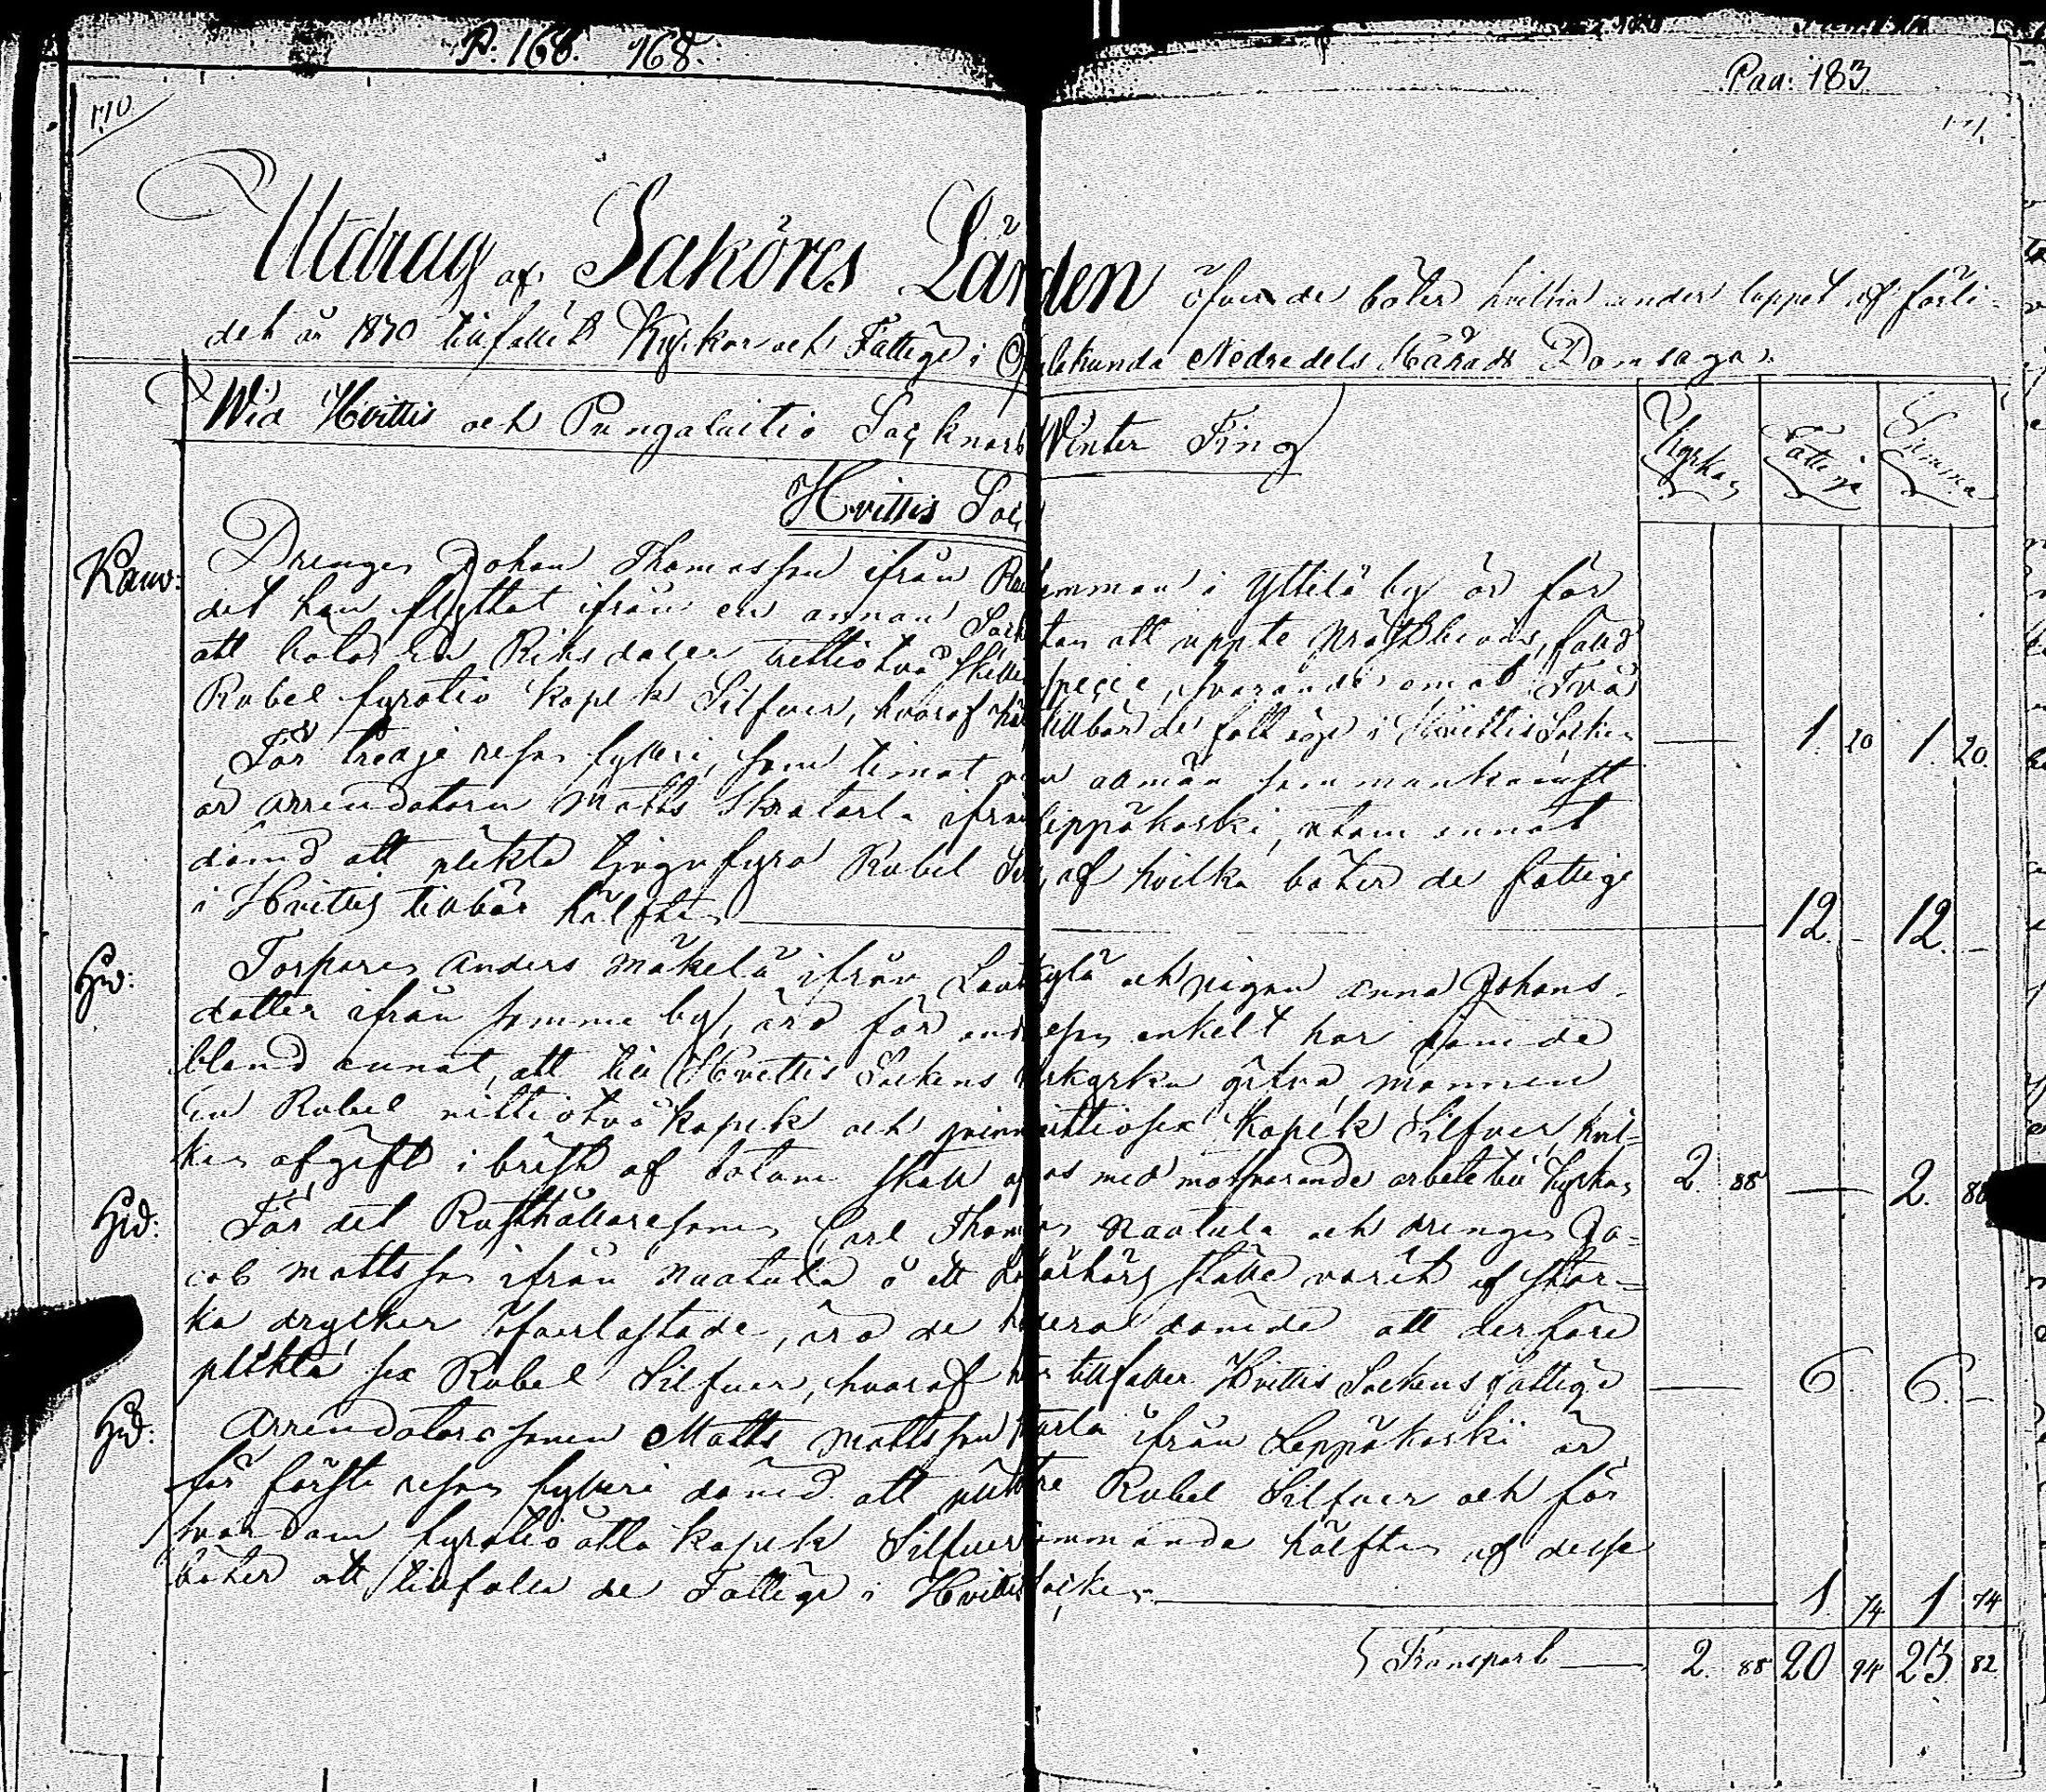 P. 168. 168.
Pag: 183
170
171
Utdrag af Saköres Länden öfver de böter hvilka under loppet af förli-
det år 1870 tillfallit Kyrkor och Fattige i Nedredels Härads Domsaga.
Wid Hvittis och Pungalaitio Socknars Winter Ting
Kyrkan Fattige Summa
Hvittis Soc
Drengen Johan Thomasson ifrån hemman i Yttilä by är för
det han flyttat ifrån en annan Sock utan att uppte prestbevis, fäld
att böta En Riksdaler trettiotvå Skill specie, svarande emot Två
Rubel fyratio kopek Silfver, hvaraf tillbör de fattige i Hvittis Socken — 1. 20 1. 20.
För tredje resan fylleri, som timat
är Arrendatorn Matts ifrån Leppäkoski, utom annat
dömd att plikta tjugufyra Rubel af hvilka böter de fattige
i Hvittis tillbör hälften — 12. - 12. -
Torparen Anders Mäkelä ifrån Lautkylä och pigan Anna Johans-
dotter ifrån samma by, äro för enkelt hor dömde
bland annat, att till Hvittis Sockens kyrka gifva, mannen
En Rubel nittiotvå kopek och qvinnan nittiosex Kopek Silfver, hvil-
ken afgift i brist af botam skall med motsvarande arbete till Kyrkan 2. 88 — 2. 88
För det Rusthållaresonen Carl Thomasson Naatula och drengen Ja-
cob Mattsson ifrån Naatula å ett ställe varit af star-
ka drycker öfverlastade, äro de dömde att derföre
plikta sex Rubel Silfver, hvaraf tillfaller Hvittis Sockens fattige — 6. 6. -
Hvd: Arrendatorsonen Matts Mattsson ifrån Leppäkoski är
för första resan fylleri dömd att Rubel Silfver och för
svordom fyratioåtta kopek Silfver kommande hälften af desse
böter att tillfalla de Fattige i Hvittis Socken. — 1. 74 1 74
Transport — 2. 88 20 94 23 82.